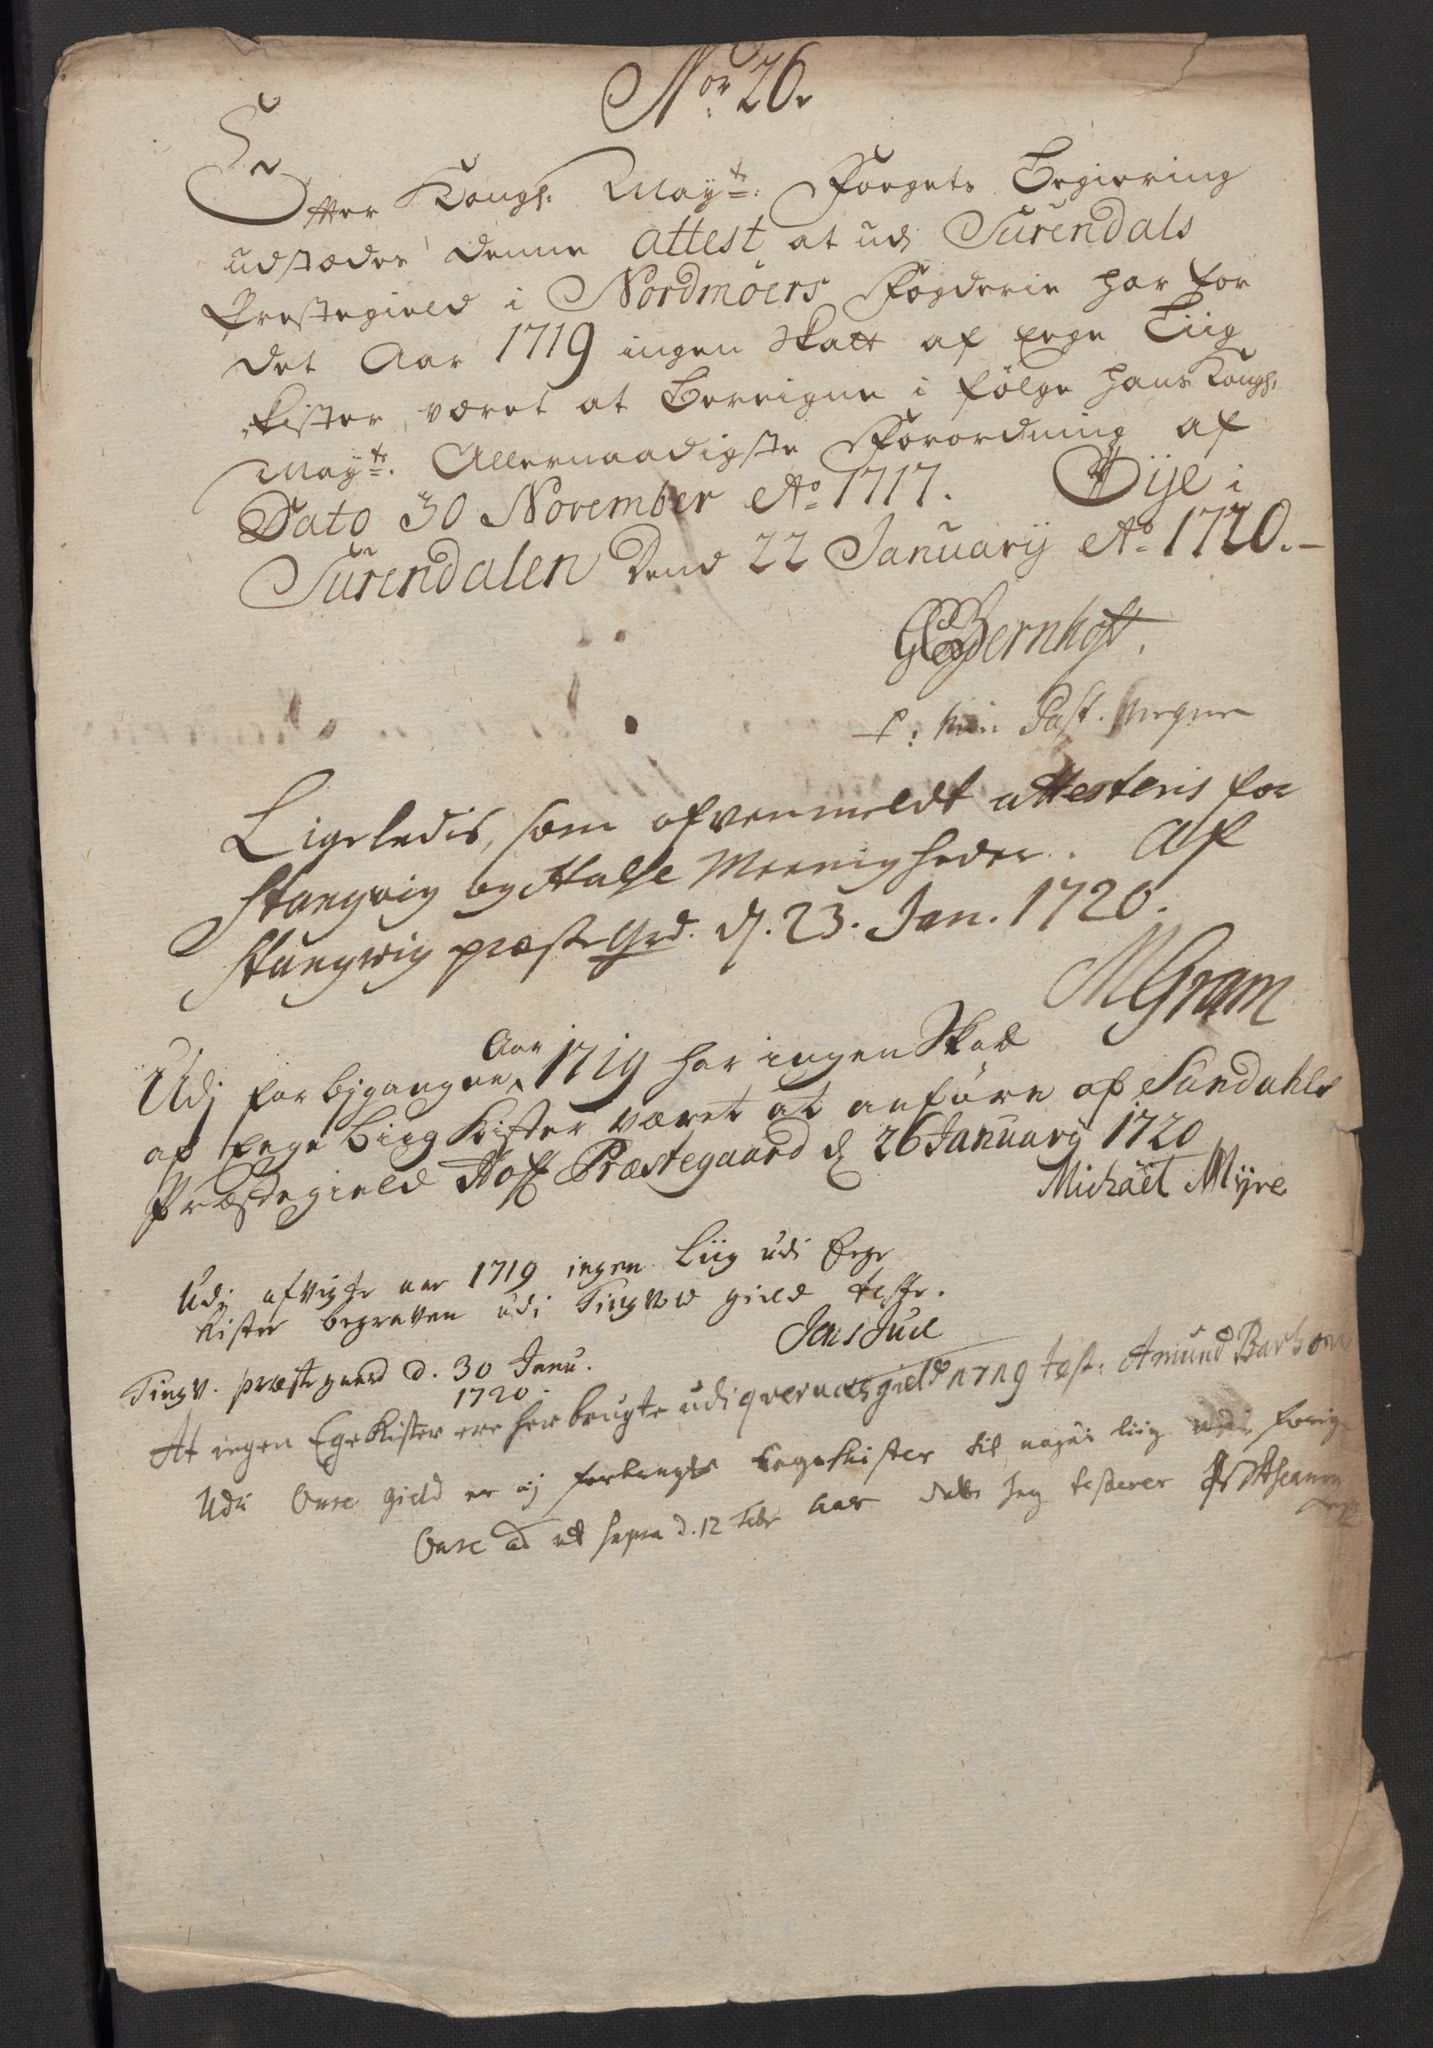 No: 26.
Effter Kongl: May:te: Fogets Begiering
udstædes denne attest at udj Surendals
Præstegield i Nordmøers Fogderie har for
det Aar 1719 ingen Skatt af Eege Liig
kister, været at Bereigne i følge hans Kongl:
May:te: Allernaadigste Forordning af
Dato 30 November Ao 1717. Øije i
Surendalen Dend 22 January Ao 1720.
Bernhoft.
p: min Past. Megne
Ligeledis, som ofvenmeldt attesteris for
Stangvig og Halse Meenigheder. Af
Stangvig præsteGrd. d. 23. Jan. 1720.
MGram
Udj forbigangne Aar 1719 har ingen Skat
af Eege Liig Kister været at anføre af Sundahls
Præstegield Hoff Præstegaard d 26 January 1720
Michäel Myre
Udj afvigte aar 1719 ingen Liig udi Eege
Kister begraven udi Tingvold gield teste.
Jens Juel
Tingv. præstegaard d. 30 Janu.
1720.
At ingen Ege Kister ere her brugte udi qvernæs gield 1719 test: Amund Barhow
Udi Øure gield er ej forlangt Eegekister til nogen liig udi forrige
Aar dette Jeg testerer
Øure ut supra d. 12 Febr